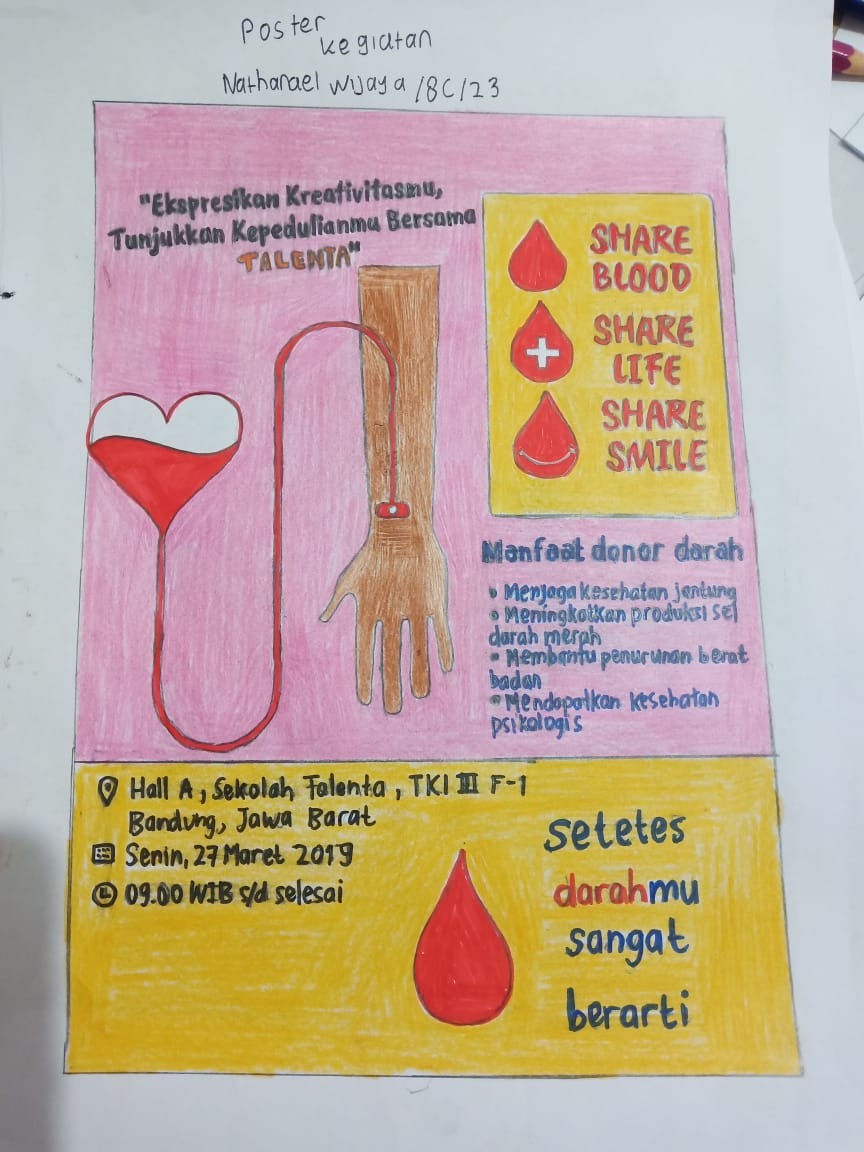 Poster
kegiatan
Nathanael Wijaya /8C/23
"Ekspresikan Kreativitasmu,
Tunjukkan Kepedulianmu Bersama
TALENTA"
SHARE
BLOOD
SHARE
LIFE
SHARE
SMILE
Manfaat donor darah
• Menjaga kesehatan jantung
• Meningkatkan produksi sel
darah merah
• Membantu penurunan berat
badan
• Mendapatkan kesehatan
psikologis
Hall A, Sekolah Talenta, TKI III F-1
Bandung, Jawa Barat
Senin, 27 Maret 2019
09.00 WIB s/d selesai
setetes
darahmu
sangat
berarti